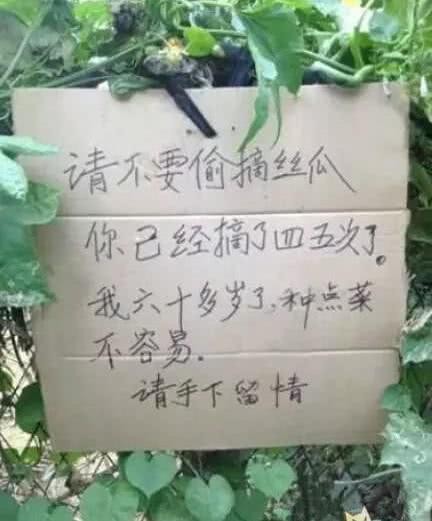 请不要偷摘丝瓜
你已经摘了四五次了。
我六十多岁了,种点菜
不容易.
请手下留情